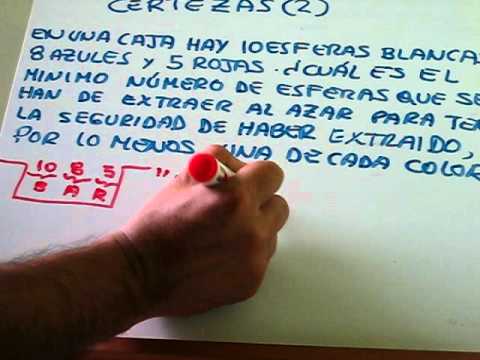 CERTEZAS (2)
EN UNA CAJA HAY 10 ESFERAS BLANCAS
8 AZULES Y 5 ROJAS. ¿CUÁL ES EL
MINIMO NÚMERO DE ESFERAS QUE SE
HAN DE EXTRAER AL AZAR PARA TE
LA SEGURIDAD DE HABER EXTRAIDO,
POR LO MENOS UNA DE CADA COLOR
10 8 5 "
B A R